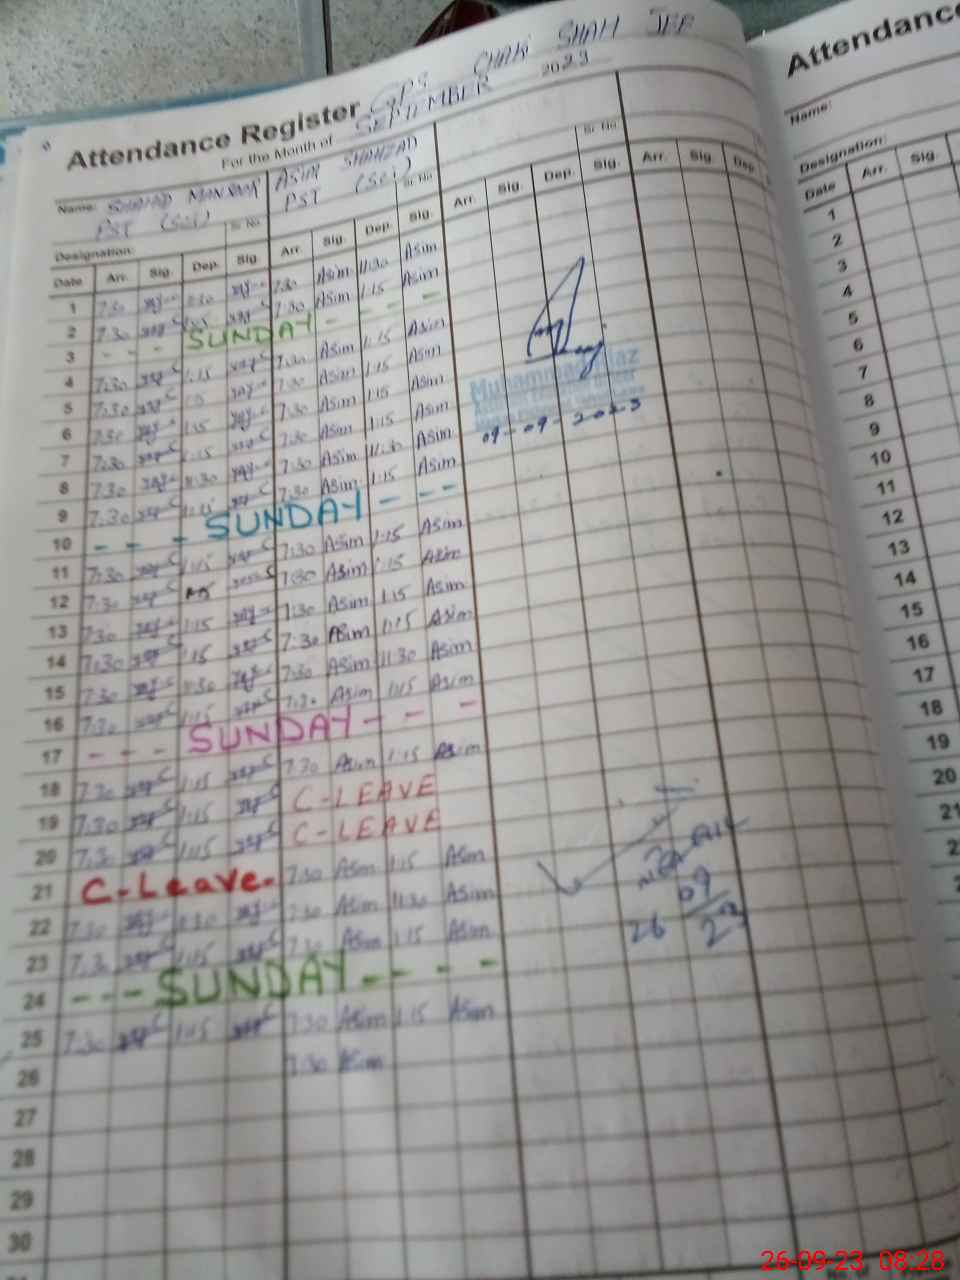 GPS CHAK SHAH JEE
Attendance Register
For the Month of SEPTEMBER 2023
Name: SHAHID MANSOOR ASIM SHAHZAD
PST (Sci) Sr No PST (Sci) Sr No Sr No
Designation:
Date Arr. Sig. Dep. Sig. Arr. Sig. Dep. Sig. Arr. Sig. Dep. Sig. Arr. Sig. Dep.
1 7:30 11:30 7:30 Asim 11:30 Asim
2 7:30 1:15 7:30 Asim 1:15 Asim
3 - - - SUNDAY - - - -
4 7:30 1:15 7:30 Asim 1:15 Asim
5 7:30 1:15 7:30 Asim 1:15 Asim
6 7:30 1:15 7:30 Asim 1:15 Asim
7 7:30 1:15 7:30 Asim 1:15 Asim
8 7:30 11:30 7:30 Asim 11:30 Asim
9 7:30 1:15 7:30 Asim 1:15 Asim
10 - - - SUNDAY - - -
11 7:30 1:15 7:30 Asim 1:15 Asim
12 7:30 1:15 7:30 Asim 1:15 Asim
13 7:30 1:15 7:30 Asim 1:15 Asim
14 7:30 1:15 7:30 Asim 1:15 Asim
15 7:30 11:30 7:30 Asim 11:30 Asim
16 7:30 1:15 7:30 Asim 1:15 Asim
17 - - - SUNDAY - - -
18 7:30 1:15 7:30 Asim 1:15 Asim
19 7:30 1:15 C-LEAVE
20 7:30 1:15 C-LEAVE
21 C-Leave. 7:30 Asim 1:15 Asim
22 7:30 11:30 7:30 Asim 11:30 Asim
23 7:30 1:15 7:30 Asim 1:15 Asim
24 - - - SUNDAY - - - -
25 7:30 1:15 7:30 Asim 1:15 Asim
26 7:30 Asim
27
28
29
30
Muhammad
09-09-2023
26 09/23
Attendance
Name:
Designation:
Date Arr. Sig.
1
2
3
4
5
6
7
8
9
10
11
12
13
14
15
16
17
18
19
20
21
26-09-23 08:28